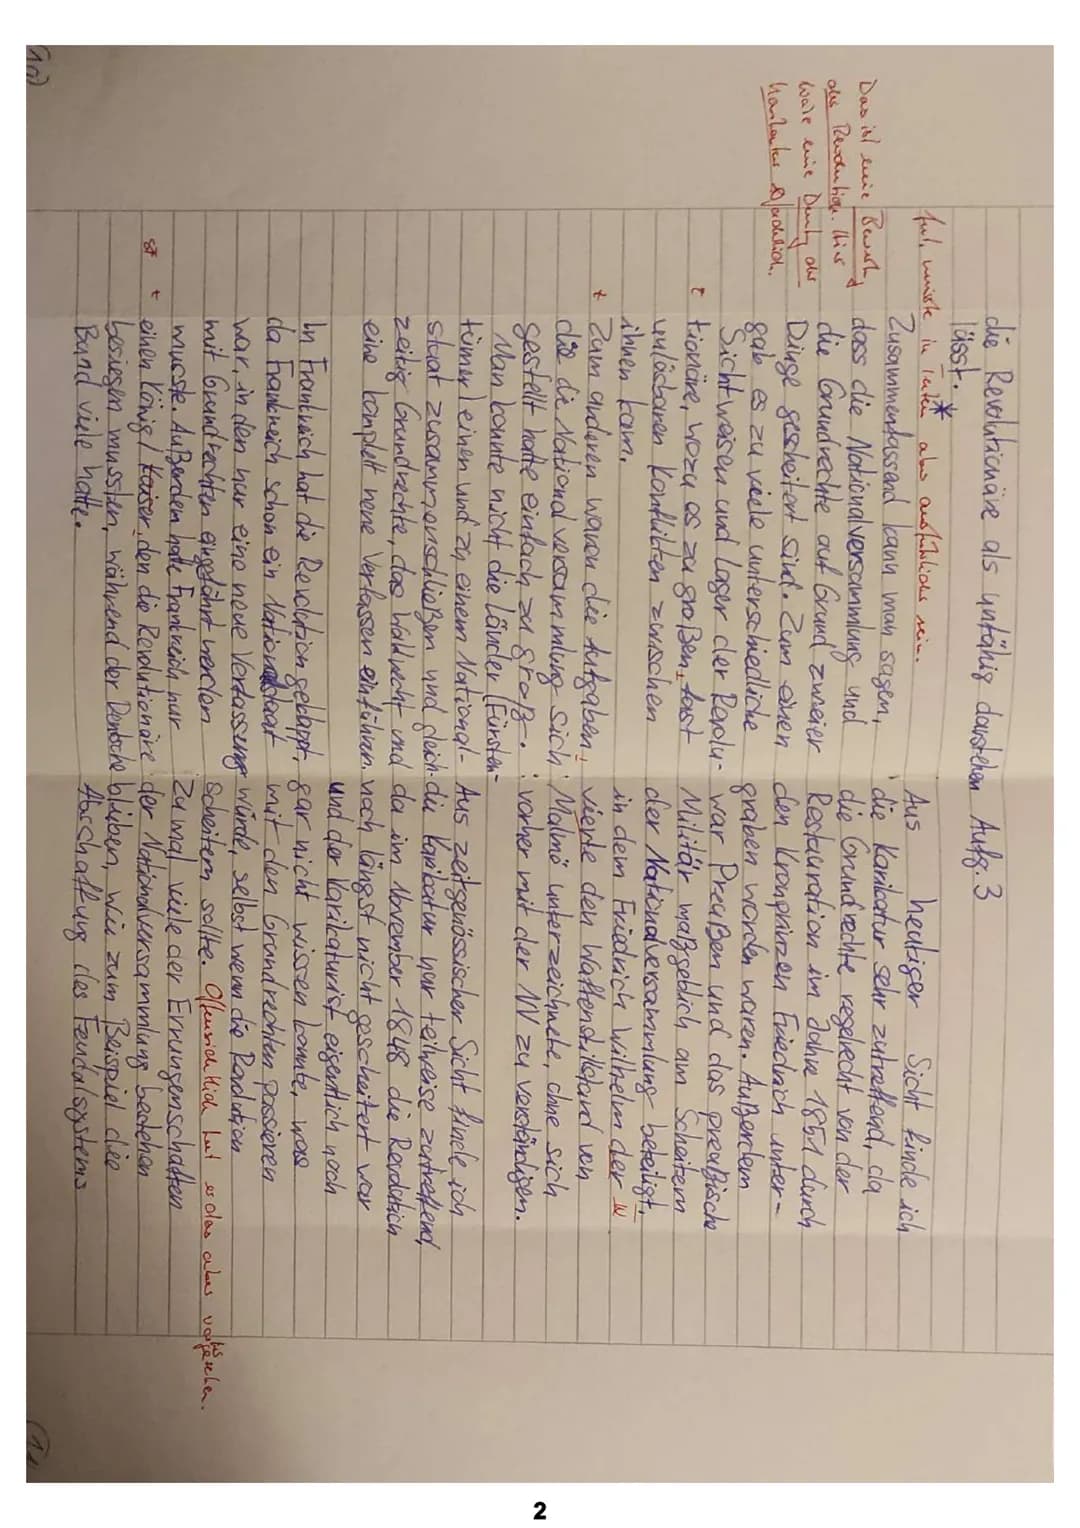 die Revolutionäre als unfähig darstehen
lässt. *
gut, müsste in - aber ausführlicher sein.
Zusammenfassend kann man sagen,
dass die Nationalversammlung und
die Grundrechte auf Grund zweier
Dinge gescheitert sind. Zum einen
gab es zu viele unterschiedliche
Sichtweisen und Lager der Revolu-
tionäre, wozu es zu großen, fast
unlösbaren Konflikten zwischen
ihnen kam.
Zum anderen waren die Aufgaben,
die die Nationalversammlung sich
gestellt hatte einfach zu groß.
Man konnte nicht die Länder (Fürsten-
tümer) einen und zu einem National-
staat zusammenschließen und gleich-
zeitig Grundrechte, das Wahlrecht und
eine komplett neue Verfassen einführen.
In Frankreich hat die Revolution geklappt,
da Frankreich schon ein Nationalstaat
war, in den nur eine neue Verfassung
mit Grundrechten eingeführt werden
musste. Außerdem hatte Frankreich nur
einen König/Kaiser, den die Revolutionäre
besiegen mussten, während der Deutsche
Bund viele hatte.
Das ist eine
der Revolution. Hier
wäre eine Deutg der
Karikatur
t
t
st t
1a)
Aufg. 3
Aus heutiger Sicht finde ich
die Karikatur sehr zutreffend, da
die Grundrechte regelrecht von der
Restauration im Jahre 1851 durch
den Kronprinzen Friedrich unter-
graben worden waren. Außerdem
war Preußen und das preußische
Militär maßgeblich am Scheitern
der Nationalversammlung beteiligt,
in dem Friedrich Wilhelm der IV
vierte den Waffenstillstand von
Malmö unterzeichnete, ohne sich
vorher mit der NV zu verständigen.
Aus zeitgenössischer Sicht finde ich
die Karikatur nur teilweise zutreffend,
da im November 1848 die Revolution
noch längst nicht gescheitert war
und der Karikaturist eigentlich noch
gar nicht wissen konnte, was
mit den Grundrechten passieren
würde, selbst wenn die Revolution
Scheitern sollte. Offensichtlich hat er das aber vorhergesehen.
Zumal viele der Errungenschaften
der Nationalversammlung bestehen
blieben, wie zum Beispiel die
Abschaffung des Feudalsystems
2